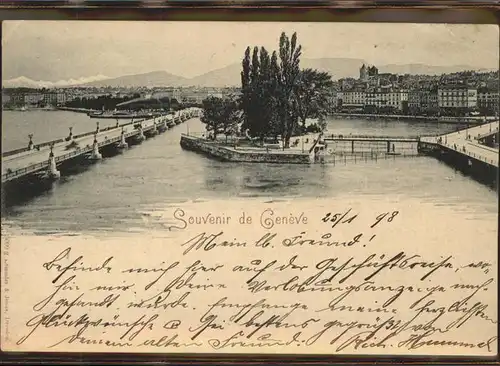 Souvenir de Genève 25/1 98
Mein lb. Freund!
Befinde mich hier auf der Geschäftsreise, wo-
hin mir Deine Verlobungsanzeige nach-
gesandt wurde. Empfange meine herzlichsten
Glückwünsche & sei bestens gegrüßt von
Deinem alten Freund: